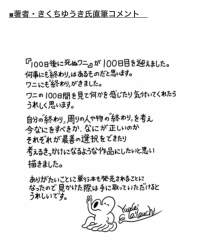 ■著者・きくちゆうき氏直筆コメント
『100日後に死ぬワニ』が100日目を迎えました。
何事にも"終わり"はあるものだと思います。
ワニにも"終わり"がきました。
ワニの100日間を見て何かを感じたり気付いてくれたら
うれしく思います。
自分の"終わり"、周りの人や物の"終わり"を考え
今なにをすべきか、なにが正しいのか
それぞれが最善の選択をできたり
考えるきっかけになるような作品にしたいと思い
描きました。
ありがたいことに単行本も発売されることに
なったので見かけた際は手に取っていただけると
うれしいです。